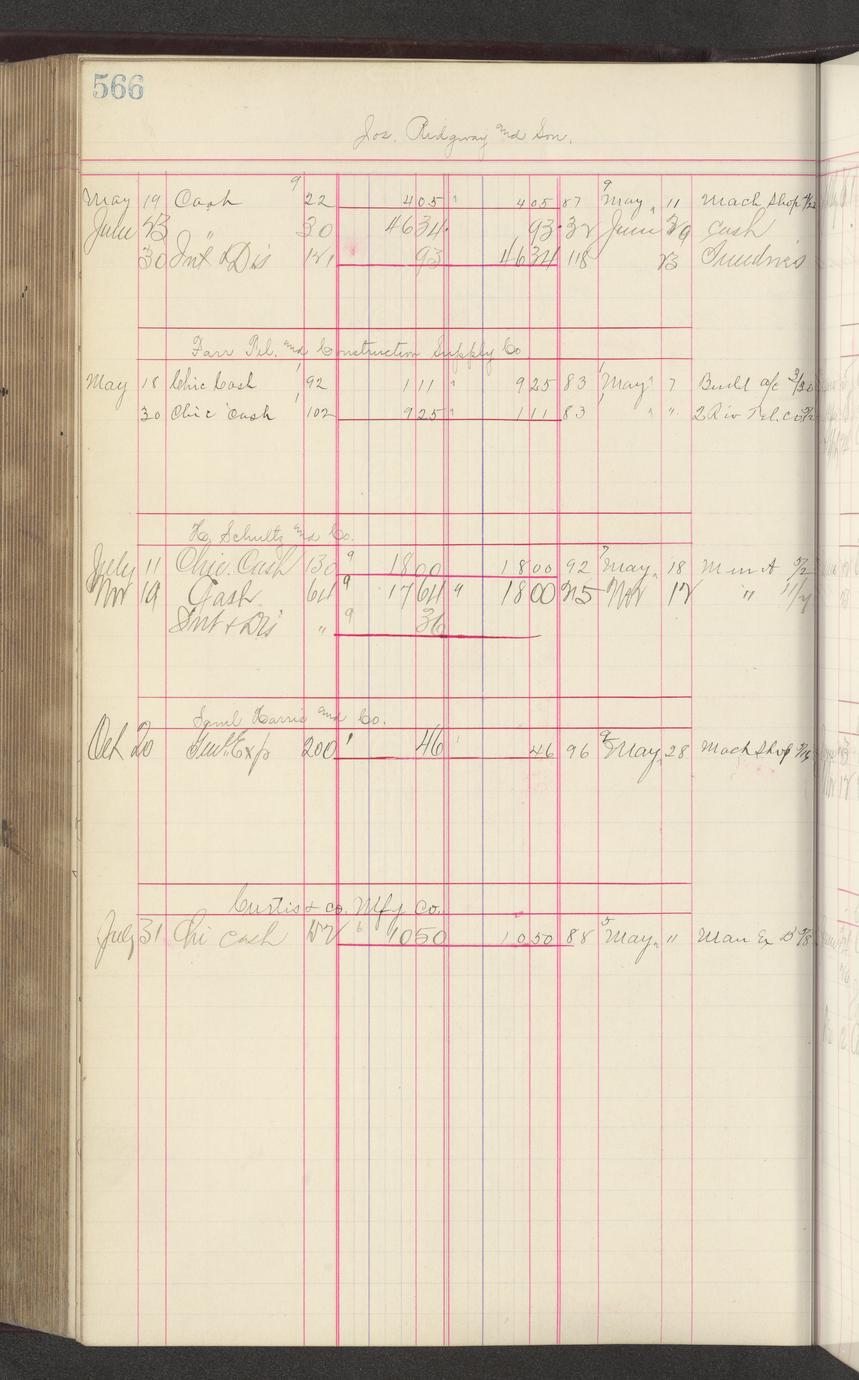 566
Jos. Ridgway and Son.
May 19 Cash 9 22 405 " 405 87 9 May " 11 Mach Shop
June 23 " 30 4634 93 32 June 29 Cash
30 Int & Dis 121 93 4634 118 23 Sundries
Farr Tel. and Construction Supply Co
May 18 Chic Cash 1 92 111 " 925 83 1 May " 7 Build a/c 3/30
30 Chic Cash 1 102 925 " 111 83 1 " " 2 Riv Tel. Co
H. Schultz and Co.
July 11 Chic. Cash 130 9 1800 1800 92 7 May " 18 M m A
Nov 19 Cash 64 9 1764 9 1800 215 Nov 12 "
Int & Dis " 9 36
Saml Harris and Co.
Oct 20 Exp 200 1 46 1 46 96 9 May " 28 Mach Shop
Curtis & co. Mfg Co.
July 31 Chi cash 6 1050 1050 88 5 May " 11 Man Ex